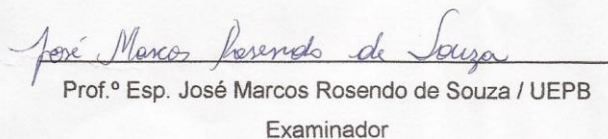 José Marcos Rosendo de Souza
Prof.º Esp. José Marcos Rosendo de Souza / UEPB
Examinador